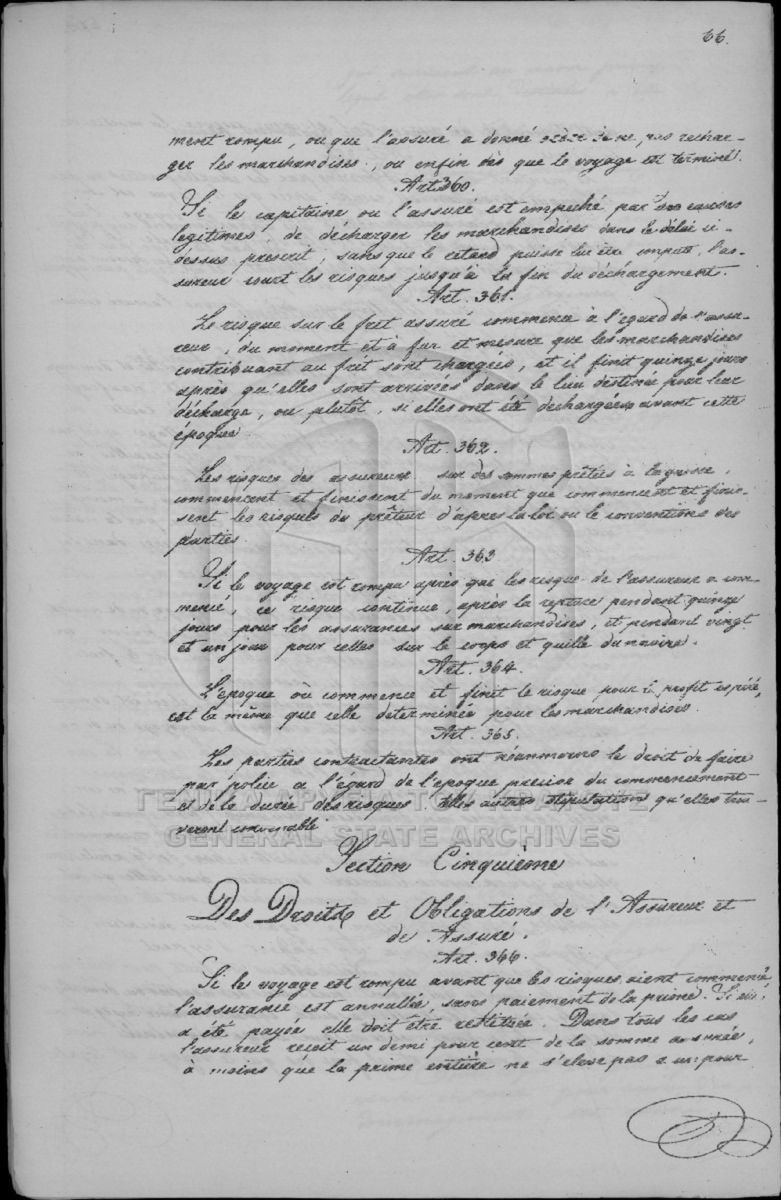 66.
ment rompu, ou que l'assuré a donné ordre de ne pas rechar-
ger les marchandises, ou enfin dès que le voyage est terminé.
Art. 360.
Si le capitaine ou l'assuré est empêché par des causes
legitimes, de décharger les marchandises dans le délai ci-
dessus prescrit, sans que le retard puisse lui être imputé, l'as-
sureur court les risques jusqu'à la fin du déchargement.
Art. 361.
Le risque sur le fret assuré commence à l'égard de l'assu-
reur, du moment et à fur et mesure que les marchandises
contribuant au frêt sont chargées, et il finit quinze jours
après qu'elles sont arrivées dans le lieu destiné pour leur
décharge, ou plutôt, si elles ont été dechargées avant cette
époque.
Art. 362.
Les risques des assureurs sur des sommes prêtées à la grosse,
commencent et finissent du moment que commencent et finis-
sent les risques du prêteur d'après la loi ou le conventions des
parties
Art. 363
Si le voyage est rompu après que les risque de l'assureur a com-
mencé, ce risque continue, après la rupture pendant quinze
jours pour les assurances sur marchandises, et pendant vingt
et un jour pour celles sur le corps et quille du navire.
Art. 364.
L'époque où commence et finit le risque pour le profit espéré,
est la même que celle determinée pour les marchandises.
Art. 365.
Les parties contractantes ont néanmoins le droit de faire
par police a l'égard de l'epoque precise du commencement
et de la durée des risques telles autres stipulations qu'elles trou-
veront convenable
ΓΕΝΙΚΑ ΑΡΧΕΙΑ ΤΟΥ ΚΡΑΤΟΥΣ
GENERAL STATE ARCHIVES
Section Cinquième
Des Droits et Obligations de l'Assureur et
de Assuré.
Art. 366.
Si le voyage est rompu avant que les risques aient commencé
l'assurance est annullée, sans paiement de la prime. Si elle
a été payée elle doit être restituée. Dans tous les cas
l'assureur reçoit un demi pour cent de la somme assurée,
à moins que la prime entière ne s'eleve pas a un pour